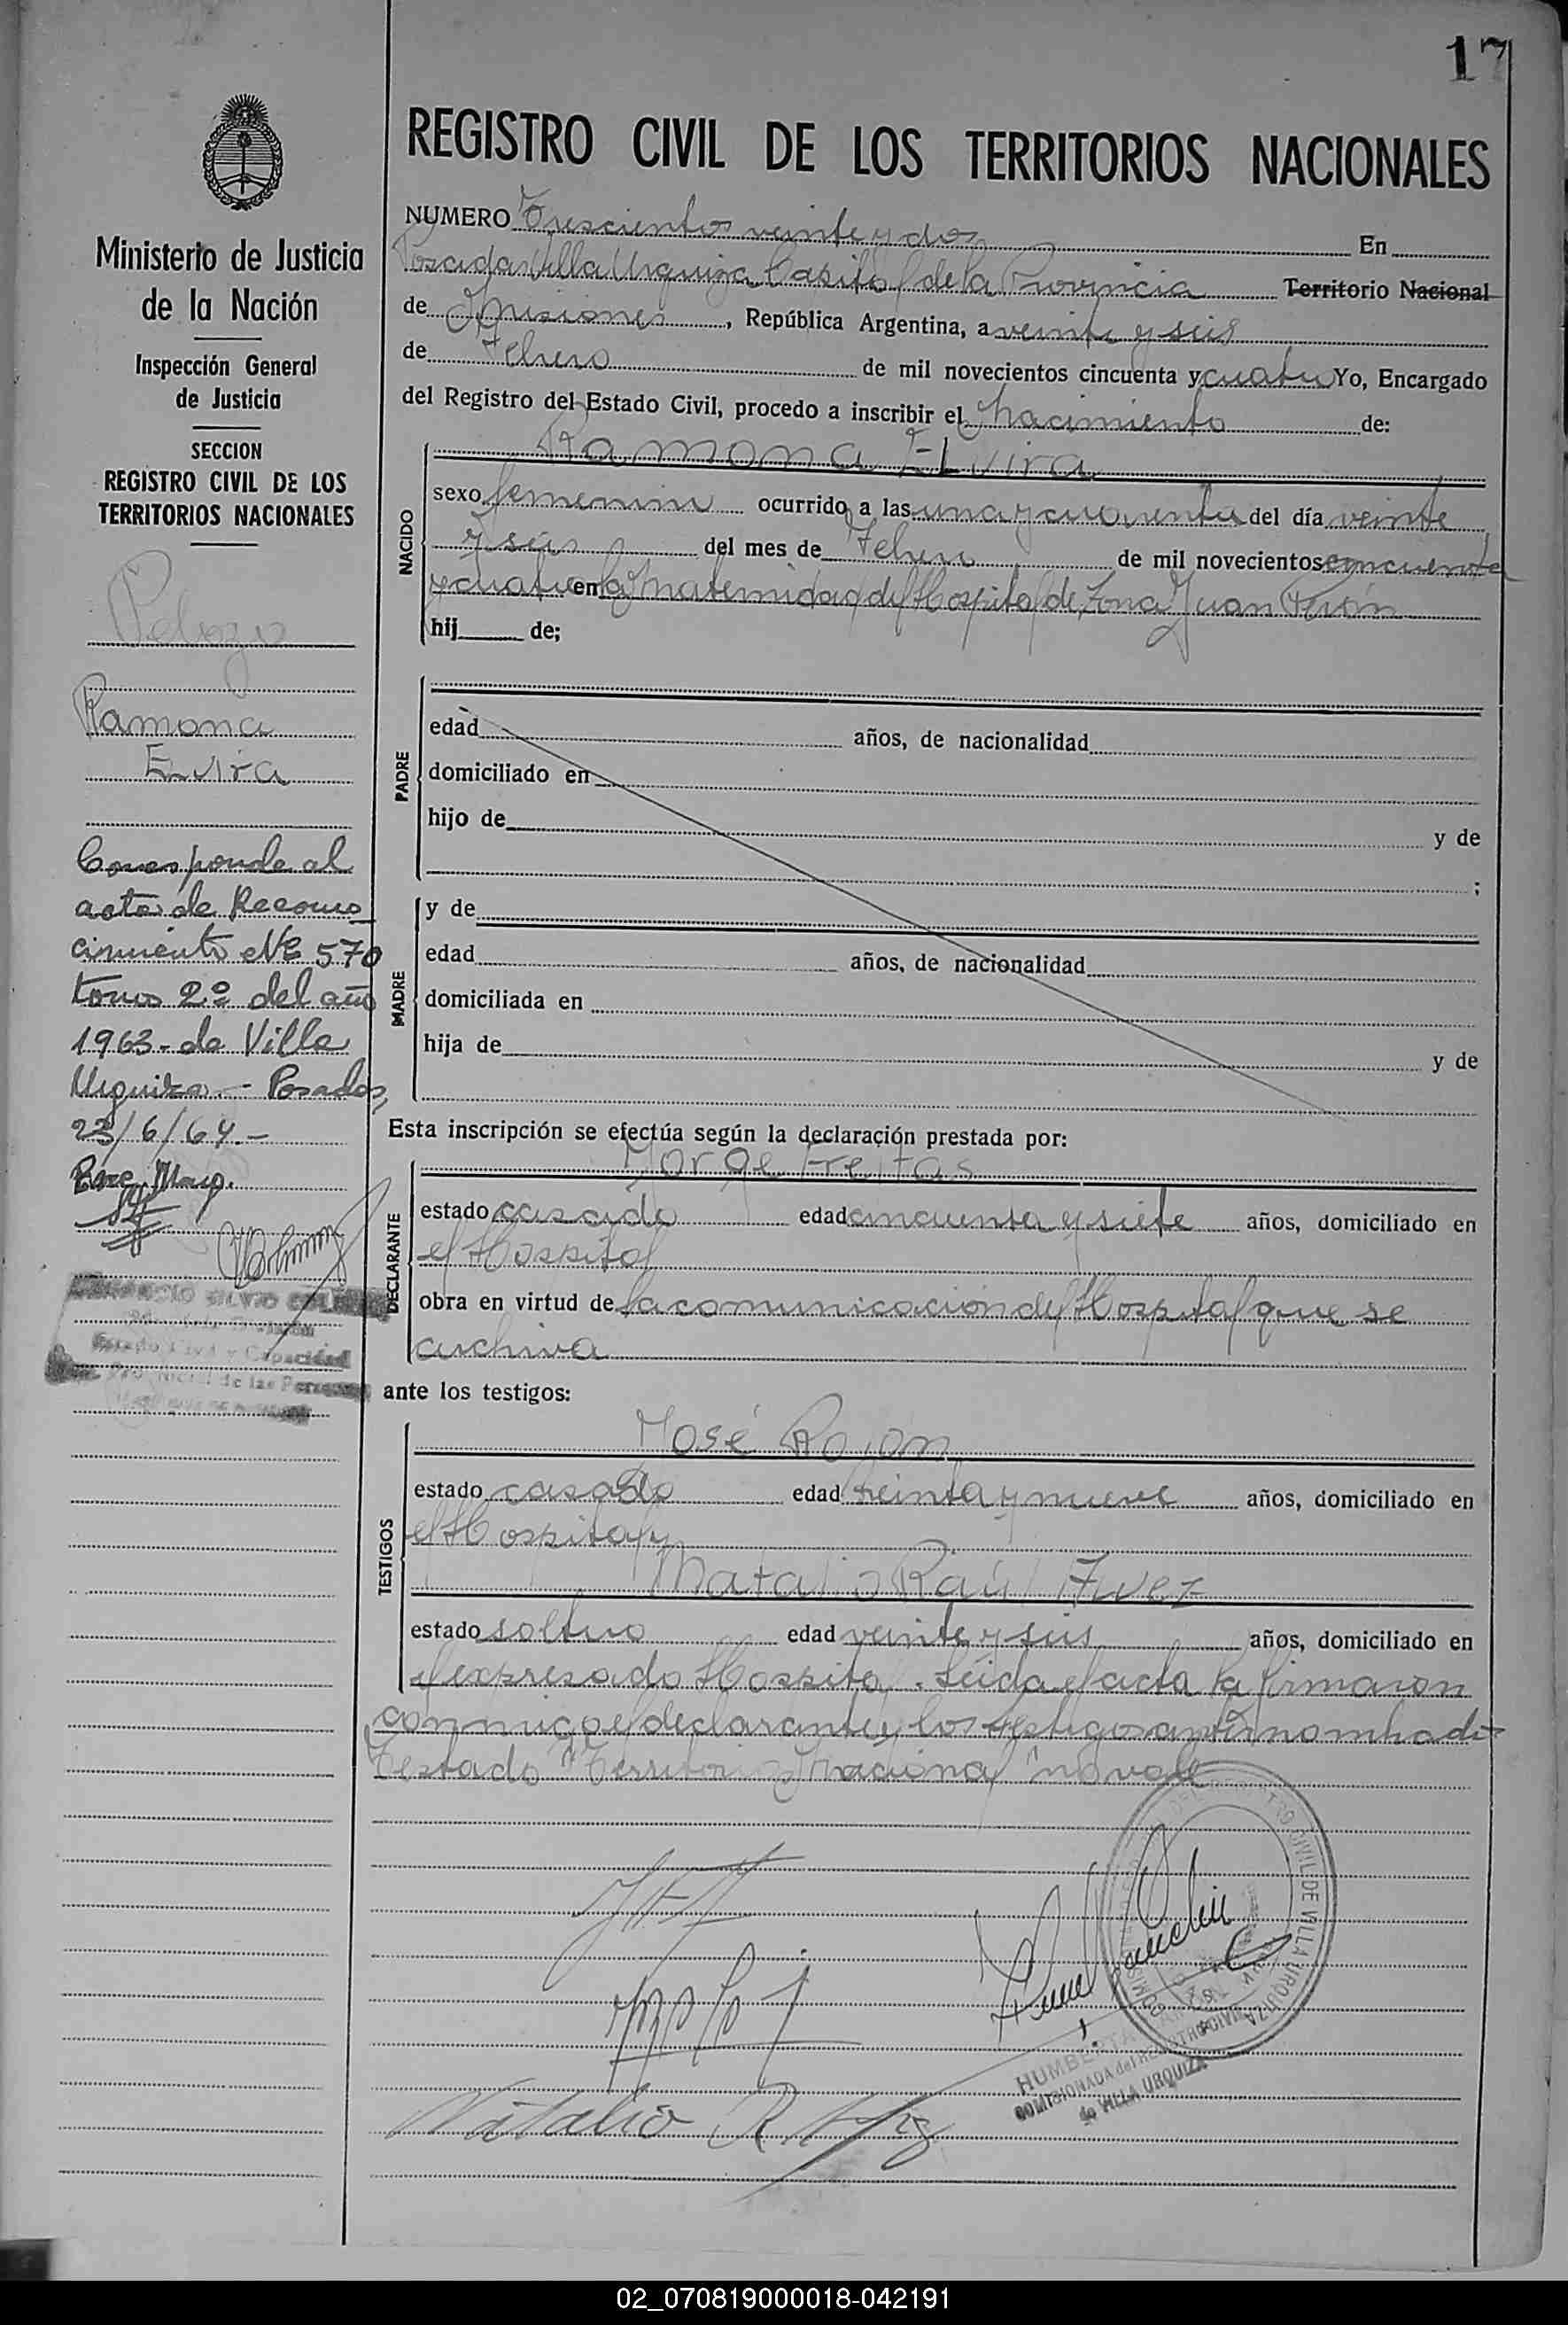 17
REGISTRO CIVIL DE LOS TERRITORIOS NACIONALES
Ministerio de Justicia
de la Nación
Inspección General
de Justicia
SECCION
REGISTRO CIVIL DE LOS
TERRITORIOS NACIONALES
Ramona
Elvira
Corresponde al
acta de Recono
cimiento Nº 570
tomo 2º del año
1963.- de Villa
Urquiza.- Posadas,
23/6/64.-
Estado Civil y Capacidad
de las Personas
NUMERO Trescientos veinte y dos En
Posadas Villa Urquiza Capital de la Provincia Territorio Nacional
de Misiones, República Argentina, a veinte y seis
de Febrero de mil novecientos cincuenta y cuatro Yo, Encargado
del Registro del Estado Civil, procedo a inscribir el Nacimiento de:
NACIDO
Ramona Elvira
sexo femenino ocurrido a las una y cuarenta del día veinte
y seis del mes de Febrero de mil novecientos cincuenta
y cuatro en la Maternidad del Hospital de Zona Juan Perón
hij de;
PADRE
edad años, de nacionalidad
domiciliado en
hijo de y de
;
MADRE
y de
edad años, de nacionalidad
domiciliada en
hija de y de
Esta inscripción se efectúa según la declaración prestada por:
DECLARANTE
Jorge Freitas
estado casado edad cincuenta y siete años, domiciliado en
el Hospital
obra en virtud de la comunicación del Hospital que se
archiva
ante los testigos:
TESTIGOS
José
estado casado edad treinta y nueve años, domiciliado en
el Hospital y
Natalio Raúl
estado soltero edad veinte y seis años, domiciliado en
el expresado Hospital. Leída el acta la firmaron
conmigo el declarante y los testigos antes nombrados
Testado "Territorio Nacional" no vale
Natalio R
CIVIL DE VILLA URQUIZA
COMISIONADA del REGISTRO CIVIL
de VILLA URQUIZA
02_070819000018-042191